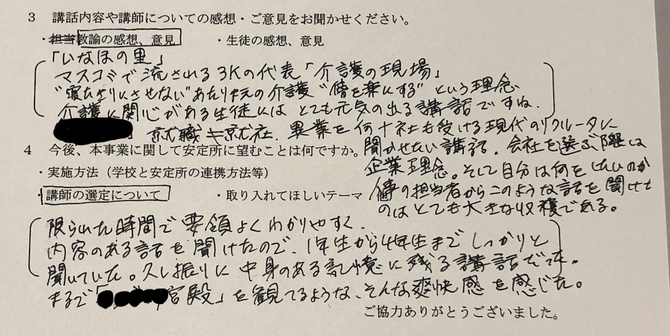 3 講話内容や講師についての感想・ご意見をお聞かせください。
・担当教諭の感想、意見 ・生徒の感想、意見
「いなほの里」
マスコミで流される3Kの代表「介護の現場」
"寝たきりにさせない"あたり前の介護"傍を楽にする"という理念
介護に関心がある生徒にはとても元気の出る講話ですね。
就職≠就社、異業を何十社も受ける現代のリクルータに
聞かせたい講話。会社を選ぶ際は
企業理念。そして自分は何をしたいのか
の担当者からこのような話を聞けた
のはとても大きな収穫である。
4 今後、本事業に関して安定所に望むことは何ですか。
・実施方法（学校と安定所の連携方法等）
・講師の選定について ・取り入れてほしいテーマ
限られた時間で要領よくわかりやすく、
内容のある話を聞けたので、1年生から4年生までしっかりと
聞いていた。久し振りに中身のある記憶に残る講話でした。
まるで「宮殿」を観てるような、そんな爽快感を感じた。
ご協力ありがとうございました。